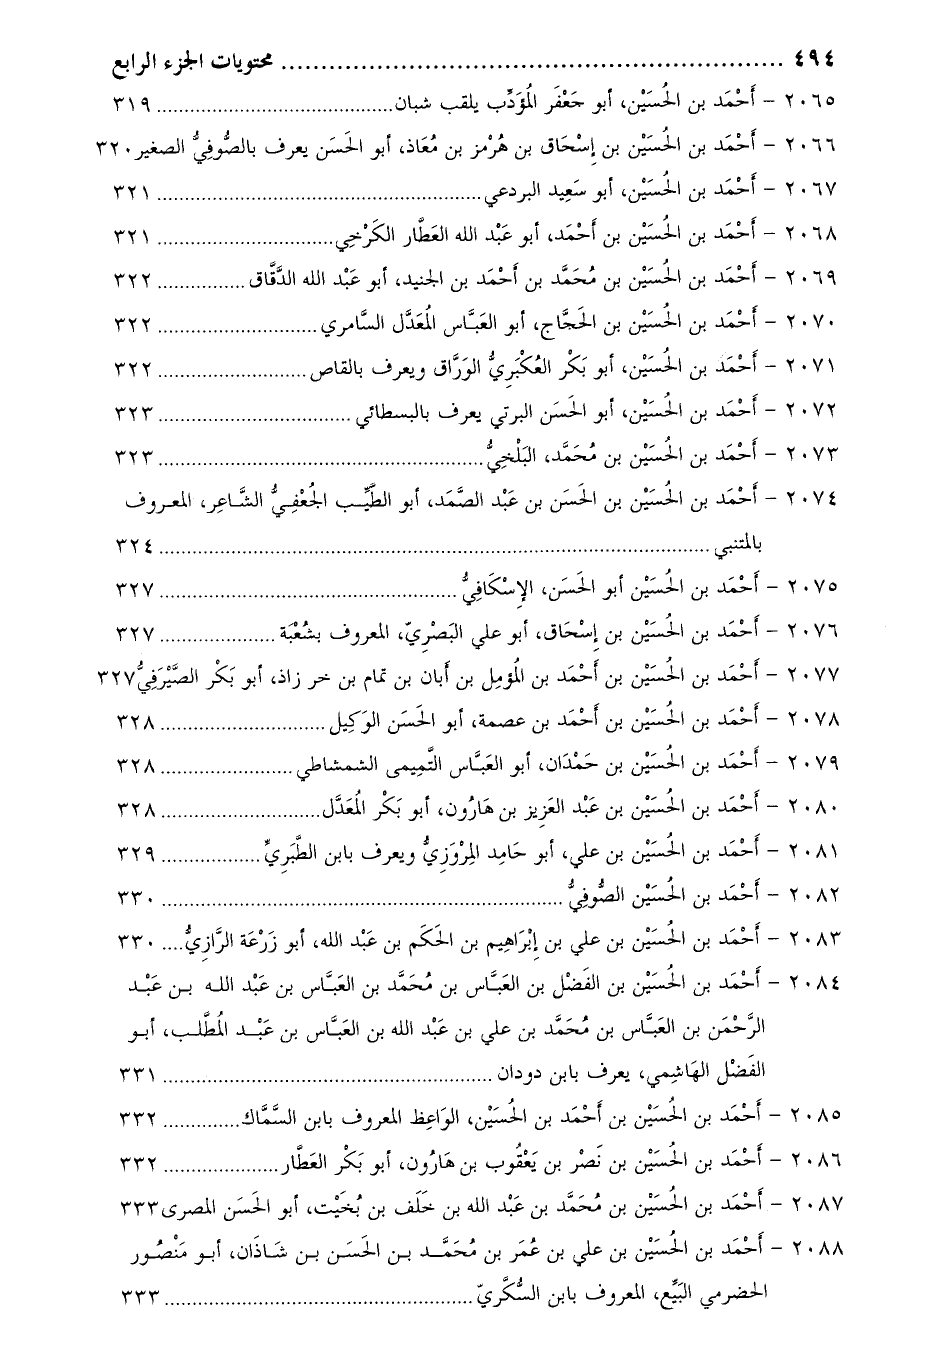 ٤٩٤ ........ محتويات الجزء الرابع
٢٠٦٥ – أَحْمَد بن الحُسَيْن، أبو جَعْفَر المُؤَدِّب يلقب شبان ........ ٣١٩
٢٠٦٦ – أَحْمَد بن الحُسَيْن بن إِسْحَاق بن هُرْمز بن مُعَاذ، أبو الحَسَن يعرف بالصُّوفِيُّ الصغير ٣٢٠
٢٠٦٧ – أَحْمَد بن الحُسَيْن، أبو سَعِيد البردعي ........ ٣٢١
٢٠٦٨ – أَحْمَد بن الحُسَيْن بن أَحْمَد، أبو عَبْد الله العَطَّار الكَرْخِي ........ ٣٢١
٢٠٦٩ – أَحْمَد بن الحُسَيْن بن مُحَمَّد بن أَحْمَد بن الجنيد، أبو عَبْد الله الدَّقَّاق ........ ٣٢٢
٢٠٧٠ – أَحْمَد بن الحُسَيْن بن الحَجَّاج، أبو العَبَّاس المُعَدَّل السَّامري ........ ٣٢٢
٢٠٧١ – أَحْمَد بن الحُسَيْن، أبو بَكْر العُكْبَرِيُّ الوَرَّاق ويعرف بالقاص ........ ٣٢٢
٢٠٧٢ – أَحْمَد بن الحُسَيْن، أبو الحَسَن البرتي يعرف بالبسطائي ........ ٣٢٣
٢٠٧٣ – أَحْمَد بن الحُسَيْن بن مُحَمَّد، البَلْخِيُّ ........ ٣٢٣
٢٠٧٤ – أَحْمَد بن الحُسَيْن بن الحَسَن بن عَبْد الصَّمَد، أبو الطَّيِّب الجُعْفِيُّ الشَّاعِر، المعروف
بالمتنبي ........ ٣٢٤
٢٠٧٥ – أَحْمَد بن الحُسَيْن أبو الحَسَن، الإِسْكَافِيُّ ........ ٣٢٧
٢٠٧٦ – أَحْمَد بن الحُسَيْن بن إِسْحَاق، أبو علي البَصْرِيّ، المعروف بشُعْبَة ........ ٣٢٧
٢٠٧٧ – أَحْمَد بن الحُسَيْن بن أَحْمَد بن المُؤمِل بن أَبان بن تمام بن خر زاذ، أبو بَكْر الصَّيْرَفِيُّ ٣٢٧
٢٠٧٨ – أَحْمَد بن الحُسَيْن بن أَحْمَد بن عصمة، أبو الحَسَن الوَكِيل ........ ٣٢٨
٢٠٧٩ – أَحْمَد بن الحُسَيْن بن حَمْدَان، أبو العَبَّاس التَّمِيمى الشمشاطي ........ ٣٢٨
٢٠٨٠ – أَحْمَد بن الحُسَيْن بن عَبْد العَزِيز بن هَارُون، أبو بَكْر المُعَدَّل ........ ٣٢٨
٢٠٨١ – أَحْمَد بن الحُسَيْن بن علي، أبو حَامِد المِرْوَزِيُّ ويعرف بابن الطَّبَرِيِّ ........ ٣٢٩
٢٠٨٢ – أَحْمَد بن الحُسَيْن الصُّوفِيُّ ........ ٣٣٠
٢٠٨٣ – أَحْمَد بن الحُسَيْن بن علي بن إِبْرَاهِيم بن الحَكَم بن عَبْد الله، أبو زَرْعَة الرَّازِيُّ .... ٣٣٠
٢٠٨٤ – أَحْمَد بن الحُسَيْن بن الفَضْل بن العَبَّاس بن مُحَمَّد بن العَبَّاس بن عَبْد الله بن عَبْد
الرَّحْمَن بن العَبَّاس بن مُحَمَّد بن علي بن عَبْد الله بن العَبَّاس بن عَبْد المُطَّلب، أبو
الفَضْل الهَاشِمي، يعرف بابن دودان ........ ٣٣١
٢٠٨٥ – أَحْمَد بن الحُسَيْن بن أَحْمَد بن الحُسَيْن، الوَاعِظ المعروف بابن السَّمَّاك ........ ٣٣٢
٢٠٨٦ – أَحْمَد بن الحُسَيْن بن نَصْر بن يَعْقُوب بن هَارُون، أبو بَكْر العَطَّار ........ ٣٣٢
٢٠٨٧ – أَحْمَد بن الحُسَيْن بن مُحَمَّد بن عَبْد الله بن خَلَف بن بُخَيْت، أبو الحَسَن المصرى ٣٣٣
٢٠٨٨ – أَحْمَد بن الحُسَيْن بن علي بن عُمَر بن مُحَمَّد بن الحَسَن بن شَاذَان، أبو مَنْصُور
الحضرمي البَيِّع، المعروف بابن السُّكَّريّ ........ ٣٣٣